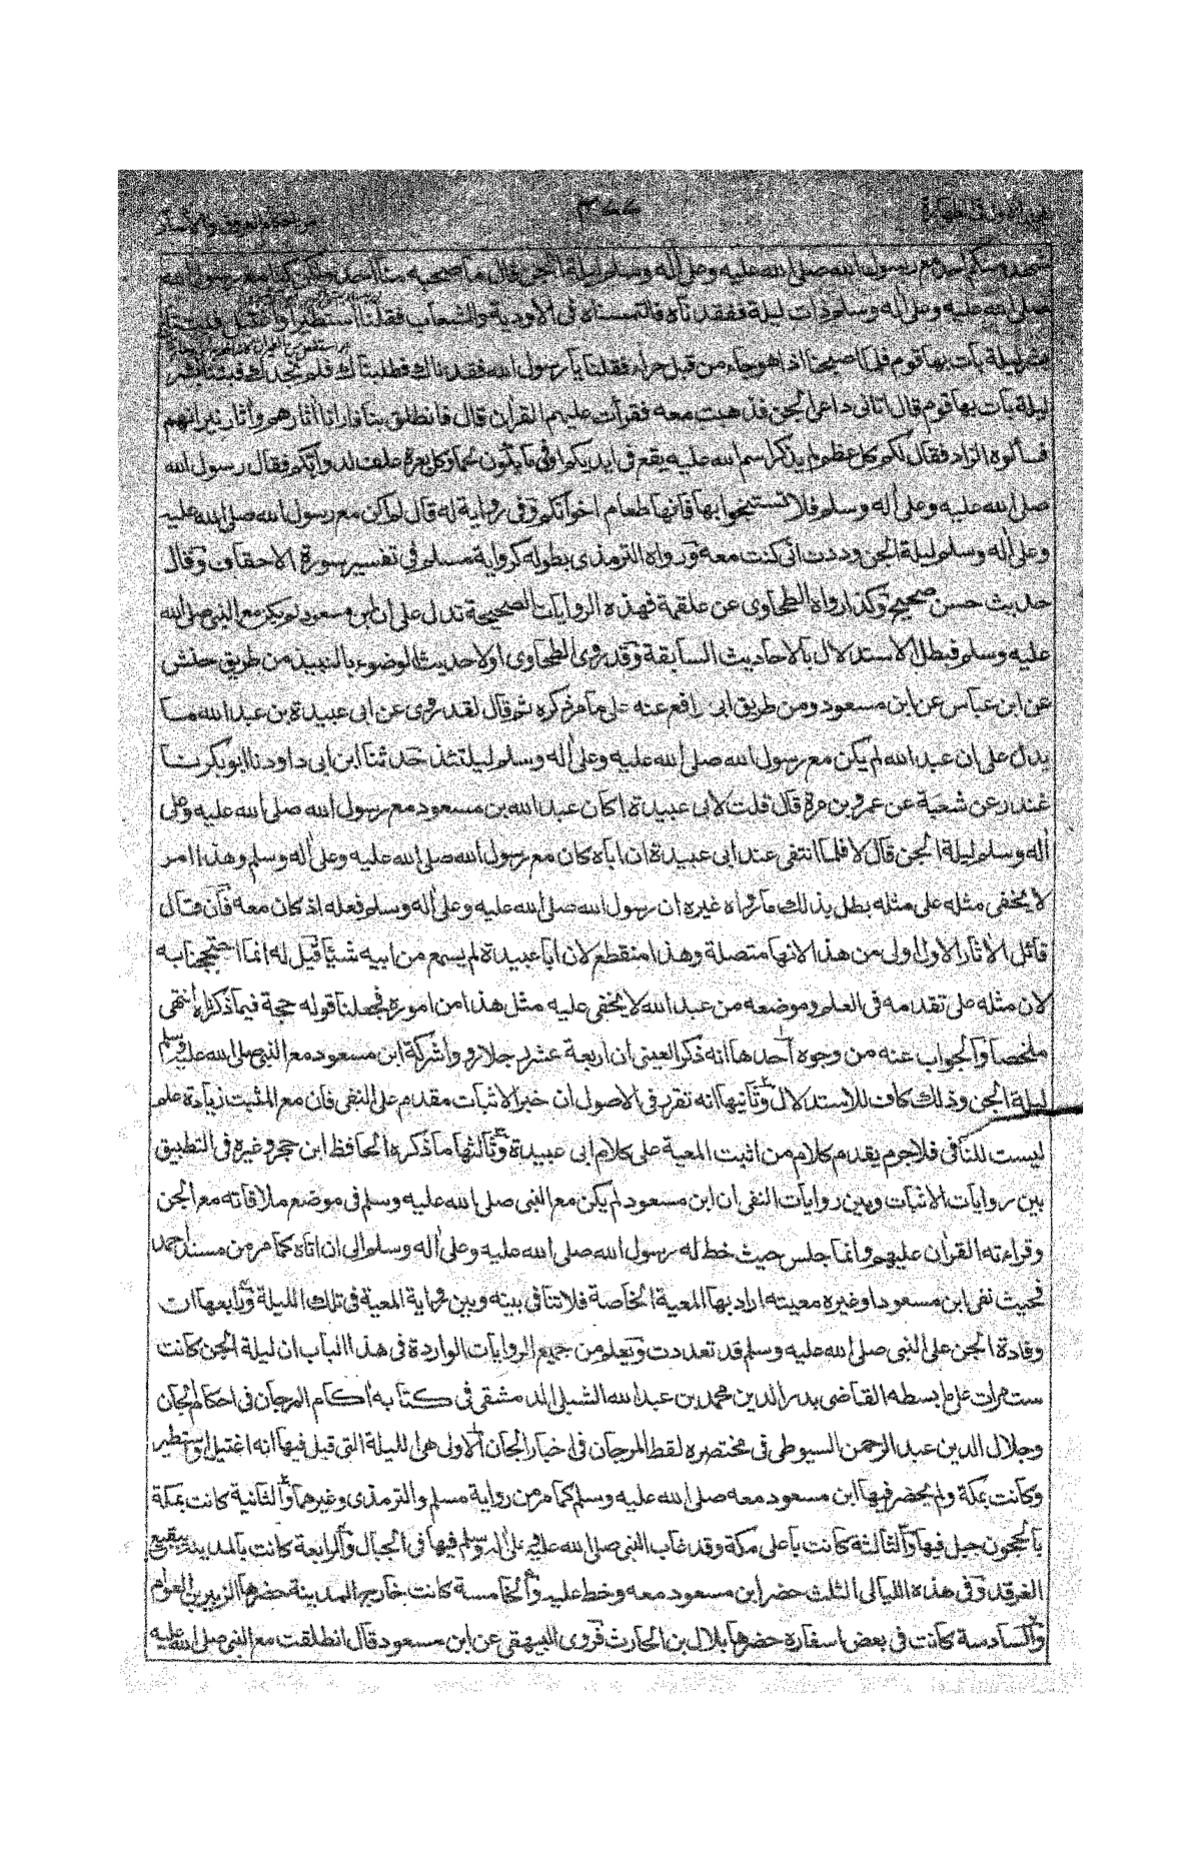 ٣٧٧
شهد منكم احد مع رسول الله صلى الله عليه وعلى اٰله وسلم ليلة الجن قال ما صحبه منا احد ولكن كنا مع رسول الله
صلى الله عليه وعلى اٰله وسلم ذات ليلة ففقدناه فالتمسناه فى الاودية والشعاب فقلنا استطير او اغتيل فبتنا
بشر ليلة بات بها قوم فلما اصبحنا اذا هو جاء من قبل حراء فقلنا يا رسول الله فقدناك فطلبناك فلم نجدك فبتنا بشر
ليلة بات بها قوم قال اتانى داعى الجن فذهبت معه فقرأت عليهم القراٰن قال فانطلق بنا فارانا اٰثارهم واٰثار نيرانهم
فسألوه الزاد فقال لكم كل عظم لم يذكر اسم الله عليه يقع فى ايديكم اوفى ما يكون لحما وكل بعرة علف لدوابكم فقال رسول الله
صلى الله عليه وعلى اٰله وسلم فلا تستنجوا بها فانها طعام اخوانكم وفى رواية له قال لم اكن مع رسول الله صلى الله عليه
وعلى اٰله وسلم ليلة الجن وددت انى كنت معه ورواه الترمذى بطوله كرواية مسلم فى تفسير سورة الاحقاف وقال
حديث حسن صحيح وكذا رواه الطحاوى عن علقمة فهذه الروايات الصحيحة تدل على ان ابن مسعود لم يكن مع النبى صلى الله
عليه وسلم فبطل الاستدلال بالاحاديث السابقة وقد روى الطحاوى اولا حديث الوضوء بالنبيذ من طريق حنش
عن ابن عباس عن ابن مسعود ومن طريق ابى رافع عنه على ما مر ذكره ثم قال لقد روى عن ابى عبيدة بن عبد الله ما
يدل على ان عبد الله لم يكن مع رسول الله صلى الله عليه وعلى اٰله وسلم ليلتئذ حدثنا ابن ابى داود نا ابو بكر نا
غندر عن شعبة عن عمرو بن مرة قال قلت لابى عبيدة اكان عبد الله بن مسعود مع رسول الله صلى الله عليه وعلى
اٰله وسلم ليلة الجن قال لا فلما انتفى عند ابى عبيدة ان اباه كان مع رسول الله صلى الله عليه وعلى اٰله وسلم وهذا امر
لا يخفى مثله على مثله بطل بذلك ما رواه غيره ان رسول الله صلى الله عليه وعلى اٰله وسلم فعله اذ كان معه فان قال
قائل الاٰثار الاول اولى من هذا لانها متصلة وهذا منقطع لان ابا عبيدة لم يسمع من ابيه شيئا قيل له انما احتججنا به
لان مثله على تقدمه فى العلم وموضعه من عبد الله لا يخفى عليه مثل هذا من اموره فجعلنا قوله حجة فيما ذكرناه انتهى
ملخصا والجواب عنه من وجوه احدها انه ذكر العينى ان اربعة عشر رجلا رووا شركة ابن مسعود مع النبى صلى الله عليه وسلم
ليلة الجن وذلك كاف للاستدلال وثانيها انه تقرر فى الاصول ان خبر الاثبات مقدم على النفى فان مع المثبت زيادة علم
ليست للنافى فلا جرم يقدم كلام من اثبت المعية على كلام ابى عبيدة وثالثها ما ذكره الحافظ ابن حجر وغيره فى التطبيق
بين روايات الاثبات وبين روايات النفى ان ابن مسعود لم يكن مع النبى صلى الله عليه وسلم فى موضع ملاقاته مع الجن
وقراءته القراٰن عليهم وانما جلس حيث خط له رسول الله صلى الله عليه وعلى اٰله وسلم الى ان اتاه كما مر من مسند احمد
فحيث نفى ابن مسعود او غيره معيته اراد بها المعية الخاصة فلا تنافى بينه وبين رواية المعية فى تلك الليلة ورابعها ان
وفادة الجن على النبى صلى الله عليه وسلم قد تعددت ويعلم من جميع الروايات الواردة فى هذا الباب ان ليلة الجن كانت
ست مرات على ما بسطه القاضى بدر الدين محمد بن عبد الله الشبلى الدمشقى فى كتابه اٰكام المرجان فى احكام الجان
وجلال الدين عبد الرحمن السيوطى فى مختصره لقط المرجان فى اخبار الجان الاولى هى الليلة التى قيل فيها انه اغتيل او استطير
وكانت بمكة ولم يحضر فيها ابن مسعود معه صلى الله عليه وسلم كما مر من رواية مسلم والترمذى وغيرهما والثانية كانت بمكة
بالحجون جبل فيها والثالثة كانت باعلى مكة وقد غاب النبى صلى الله عليه وعلى اٰله وسلم فيها فى الجبال والرابعة كانت بالمدينة ببقيع
الغرقد وفى هذه الليالى الثلث حضر ابن مسعود معه وخط عليه والخامسة كانت خارج المدينة حضرها الزبير بن العوام
والسادسة كانت فى بعض اسفاره حضرها بلال بن الحارث فروى البيهقى عن ابن مسعود قال انطلقت مع النبى صلى الله عليه